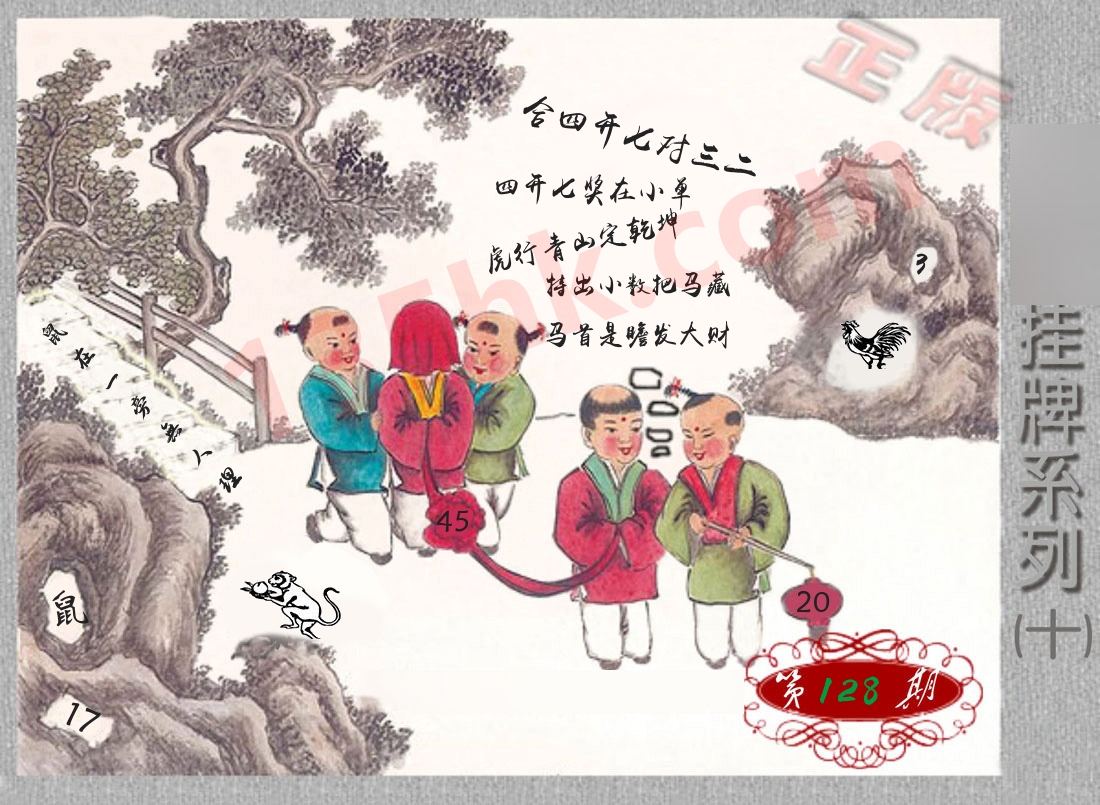 正版
合四开七对三二
四开七奖在小单
虎行青山定乾坤
持出小数把马藏
马首是瞻发大财
3
挂牌系列(十)
鼠在一旁无人理
45
20
鼠
17
第128期